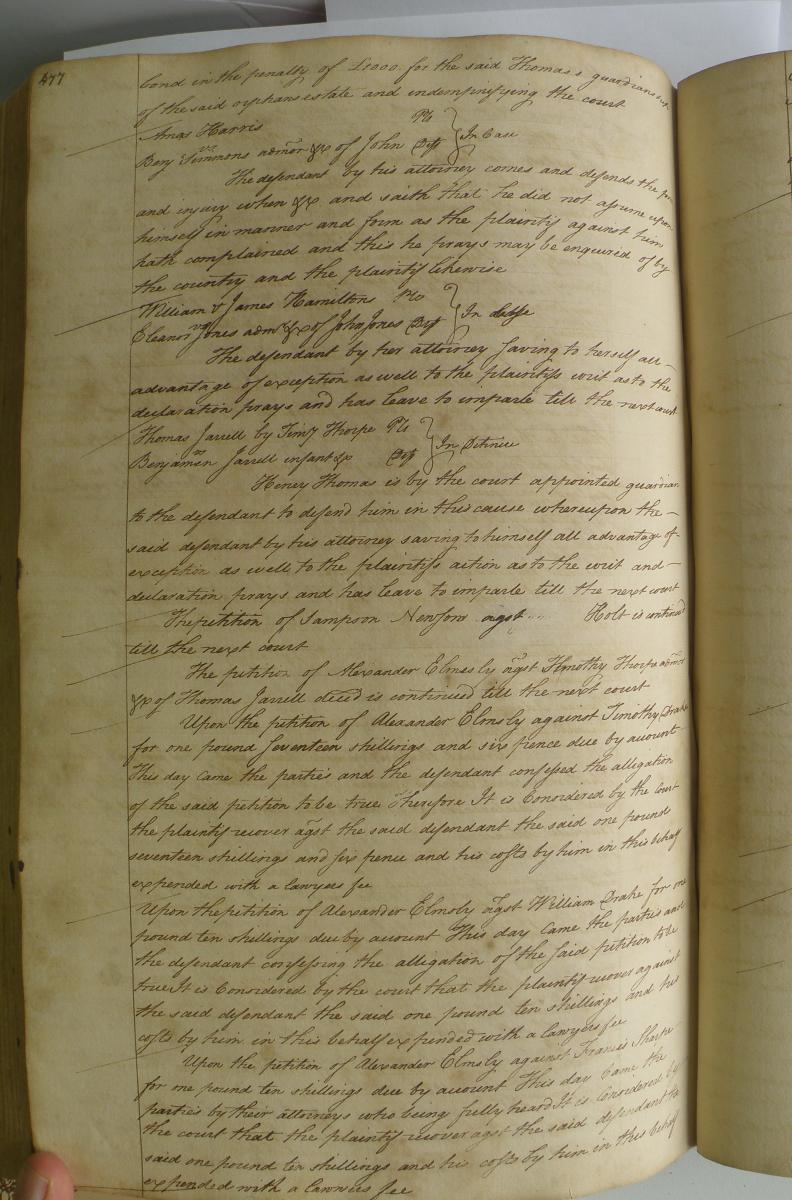 477
bond in the penalty of £1000. for the said Thomas's guardianship
of the said orphans estate and indempnifying the court
Amos Harris Plt
vs } In Case
Benj Simmons admor &c of John Deft
The defendant by his attorney comes and defends the
and injury when &c and saith that he did not assume upon
himself in manner and form as the plaintif against him
hath complained and this he prays may be enquired of by
the country and the plaintif likewise
William & James Hamiltons Plts
vs } In debt
Eleanor Jones admx &c of John Jones Deft
The defendant by her attorney saving to herself all
advantage of exception as well to the plaintifs writ as to the
declaration prays and has leave to imparle till the next court
Thomas Jarrell by Timy Thorpe Plt
vs } In Detinue
Benjamin Jarrell infant &c Deft
Henry Thomas is by the court appointed guardian
to the defendant to defend him in this cause whereupon the
said defendant by his attorney saving to himself all advantage of
exception as well to the plaintifs action as to the writ and
declaration prays and has leave to imparle till the next court
The petition of Sampson Newsom agst Holt is continued
till the next court
The petition of Alexander Elmesly agst Timothy Thorpe admor
&c of Thomas Jarrell deced is continued till the next court
Upon the petition of Alexander Elmsly against Timothy Drake
for one pound seventeen shillings and six pence due by account
This day came the parties and the defendant confessed the alligation
of the said petition to be true Therefore It is Considered by the Court
the plaintif recover agst the said defendant the said one pound
seventeen shillings and six pence and his costs by him in this behalf
expended with a lawyers fee
Upon the petition of Alexander Elmsly agst William Drake for one
pound ten shillings due by account This day came the parties and
the defendant confessing the allegation of the said petition to be
true It is Considered by the court that the plaintif recover against
the said defendant the said one pound ten shillings and his
costs by him in this behalf expended with a lawyers fee
Upon the petition of Alexander Elmsly against Francis Sharpe
for one pound ten shillings due by account This day came the
parties by their attorneys who being fully heard It is Considered by
the court that the plaintif recover agst the said defendant the
said one pound ten shillings and his costs by him in this behalf
expended with a lawyers fee